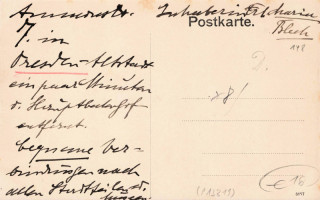 Ammonstr.
7. in
Dresden-Altstadt
ein paar Minuten
v. Hauptbahnhof
entfernt.
bequeme Ver-
bindungen nach
allen Stadtteilen u.
Inhaberin
Postkarte.
Blech
148
2.
28/
16